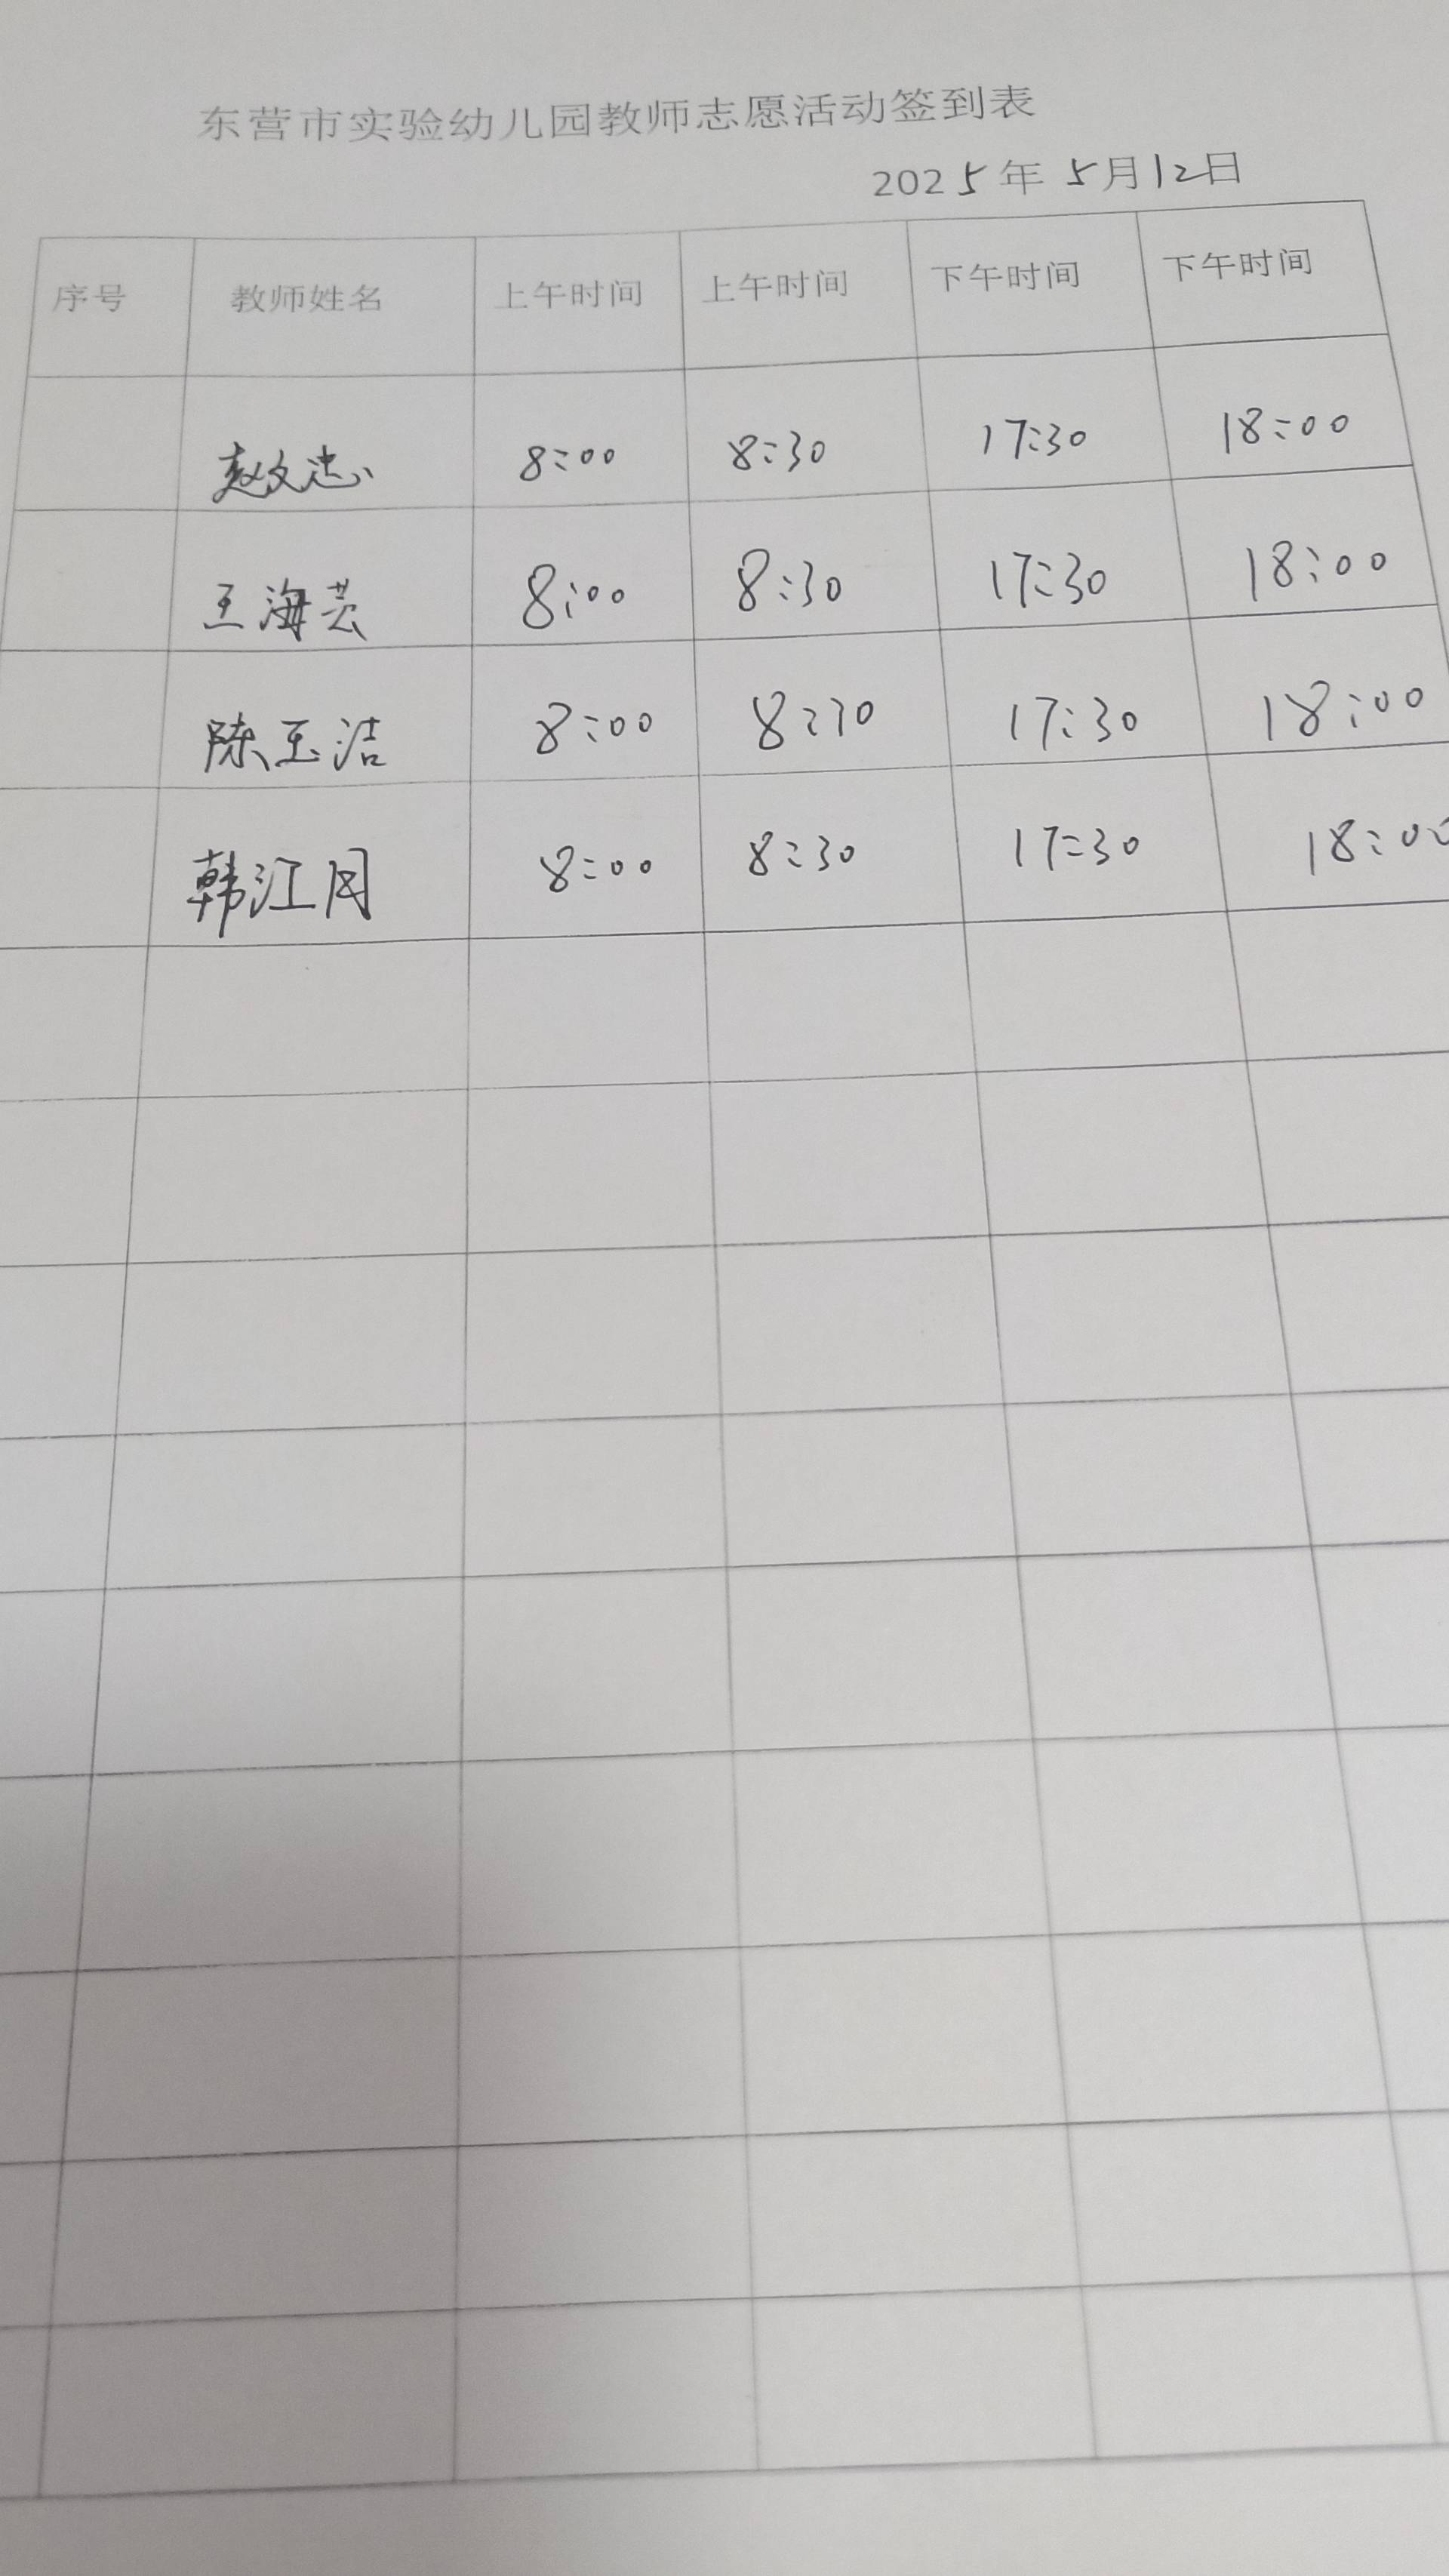 东营市实验幼儿园教师志愿活动签到表
2025年5月12日
序号 教师姓名 上午时间 上午时间 下午时间 下午时间
赵文忠 8:00 8:30 17:30 18:00
王海芸 8:00 8:30 17:30 18:00
陈玉洁 8:00 8:30 17:30 18:00
韩江月 8:00 8:30 17:30 18:00